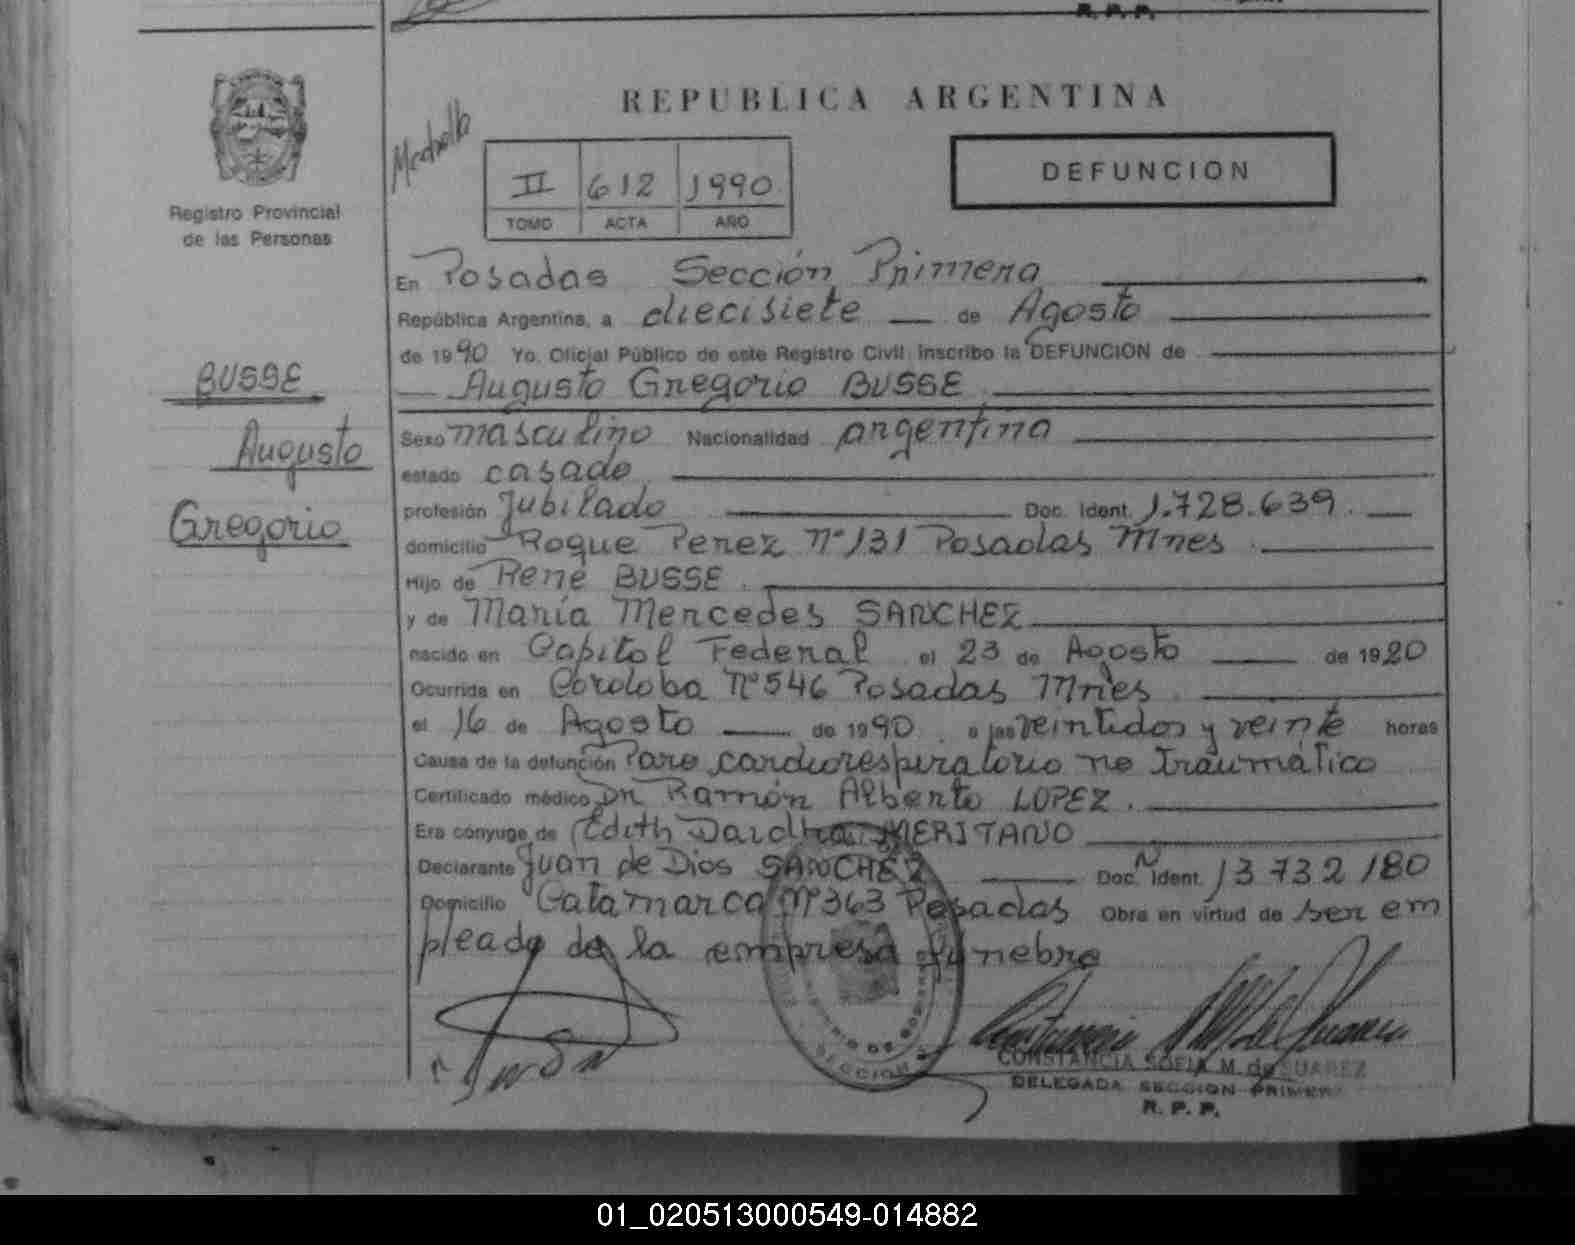 R. P. P.
REPUBLICA ARGENTINA
DEFUNCION
II 612 1990
TOMO ACTA AÑO
Registro Provincial
de las Personas
En Posadas Sección Primera
República Argentina, a diecisiete de Agosto
de 1990 Yo, Oficial Público de este Registro Civil inscribo la DEFUNCION de
Augusto Gregorio BUSSE
BUSSE
Augusto
Gregorio
Sexo masculino Nacionalidad argentina
estado casado
profesión Jubilado Doc. Ident. 1.728.639.
domicilio Roque Perez Nº 131 Posadas Mnes.
Hijo de René BUSSE.
y de María Mercedes SANCHEZ
nacido en Capital Federal el 23 de Agosto de 1920
Ocurrida en Cordoba Nº 546 Posadas Mnes.
el 16 de Agosto de 1990. a las veintidos y veinte horas
Causa de la defunción Paro cardiorespiratorio no traumático
Certificado médico Dr. Ramón Alberto LOPEZ.
Era cónyuge de Edith MERITANO
Declarante Juan de Dios SANCHEZ Doc. Ident. 13 732 180
Domicilio Catamarca Nº 363 Posadas Obra en virtud de ser em
pleado de la empresa fúnebre
SECCION
CONSTANCIA SOFIA M. de SUAREZ
DELEGADA SECCION PRIMERA
R. P. P.
01_020513000549-014882